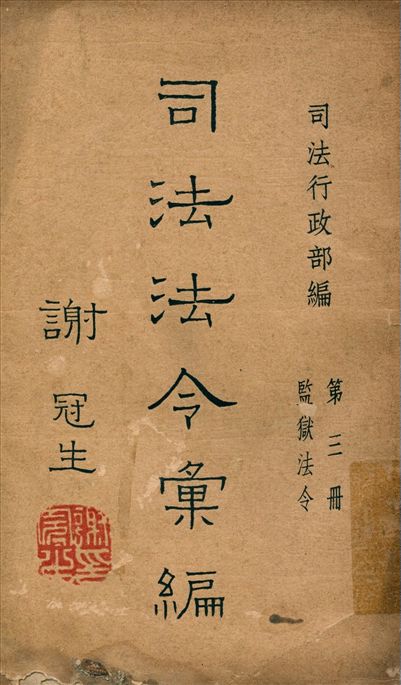 司法行政部編
第三冊
監獄法令
司法法令彙編
謝冠生